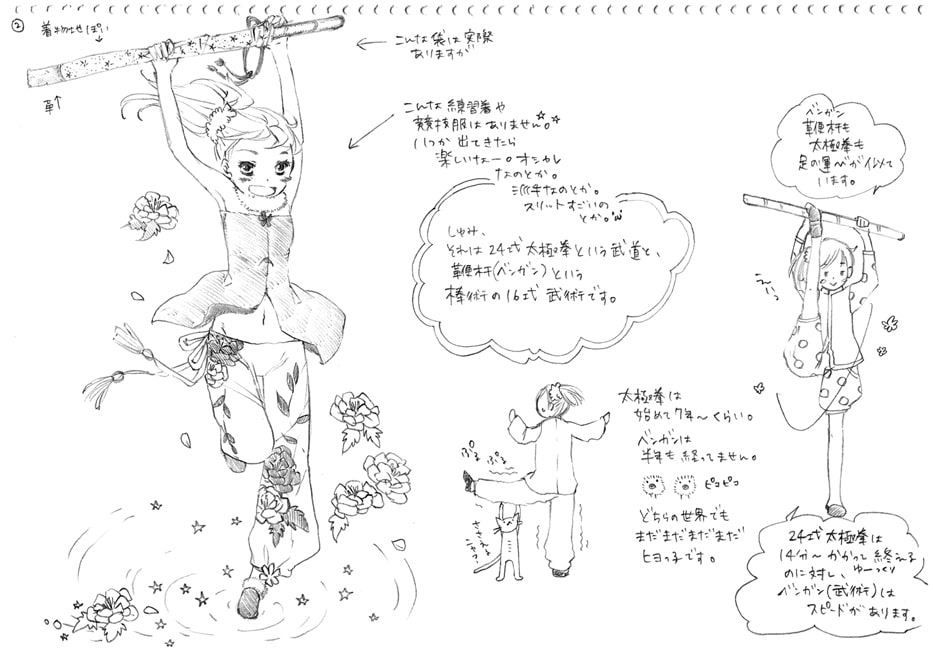 ②
着物地っぽい
↓
革↑
← こんな袋は実際
ありますが
こんな練習着や
競技服はありません。☆☆
いつか出てきたら
楽しいなー。オシャレ
なのとか。
派手なのとか。
スリットすごいの
とか。'ω'
しゅみ、
それは24式太極拳という武道と、
鞭杆(ベンガン)という
棒術の16式武術です。
ベンガン
鞭杆も
太極拳も
足の運びが似て
います。
えいっ
太極拳は
始めて7年〜くらい。
ベンガンは
半年も経ってません。
ピヨピヨ
どちらの世界でも
まだまだまだまだ
ヒヨっ子です。
ぷる ぷる
ささえる
ニャつ
24式太極拳は
14分〜かかって終える
のに対し、ゆーっくり
ベンガン(武術)は
スピードがあります。